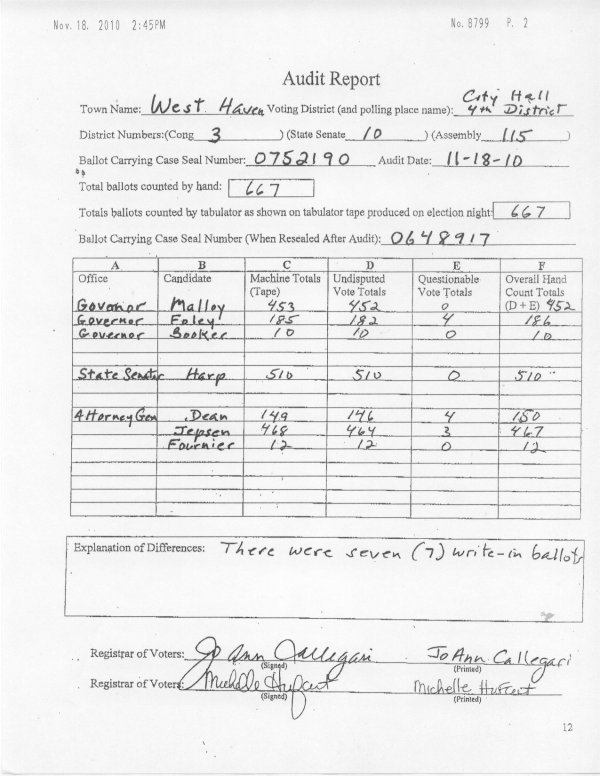 Nov. 18. 2010 2:45PM No. 8799 P. 2
Audit Report
Town Name: West Haven Voting District (and polling place name): City Hall 4th District
District Numbers:(Cong 3 ) (State Senate 10 ) (Assembly 115 )
Ballot Carrying Case Seal Number: 0752190 Audit Date: 11-18-10
Total ballots counted by hand: 667
Totals ballots counted by tabulator as shown on tabulator tape produced on election night: 667
Ballot Carrying Case Seal Number (When Resealed After Audit): 0648917
A B C D E F
Office Candidate Machine Totals Undisputed Questionable Overall Hand
(Tape) Vote Totals Vote Totals Count Totals
Governor Malloy 453 452 0 (D + E) 452
Governor Foley 185 182 4 186
Governor Booker 10 10 0 10
State Senator Harp 510 510 0 510
Attorney Gen Dean 149 146 4 150
Jepsen 468 464 3 467
Fournier 12 12 0 12
Explanation of Differences: There were seven (7) write-in ballots
Registrar of Voters: Jo Ann Callegari JoAnn Callegari
(Signed) (Printed)
Registrar of Voters: Michelle Hufcut Michelle Hufcut
(Signed) (Printed)
12